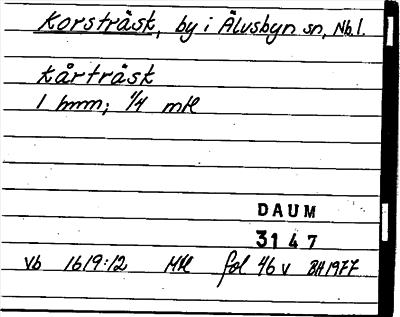 Korsträsk, by i Älvsbyn sn, Nb.l.
Kårträsk
1 hmm; 1/4 mtl
DAUM
3147
Vb 1619:12 Mtl fol 46 v BH1977